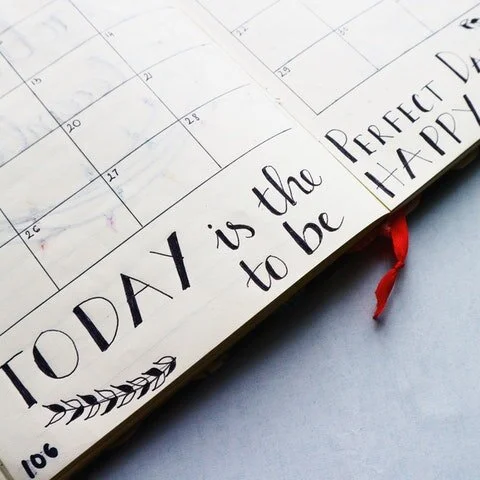 14
22
13
21
29
20
28
27
26
TODAY is the
to be
PERFECT
HAPPY
106